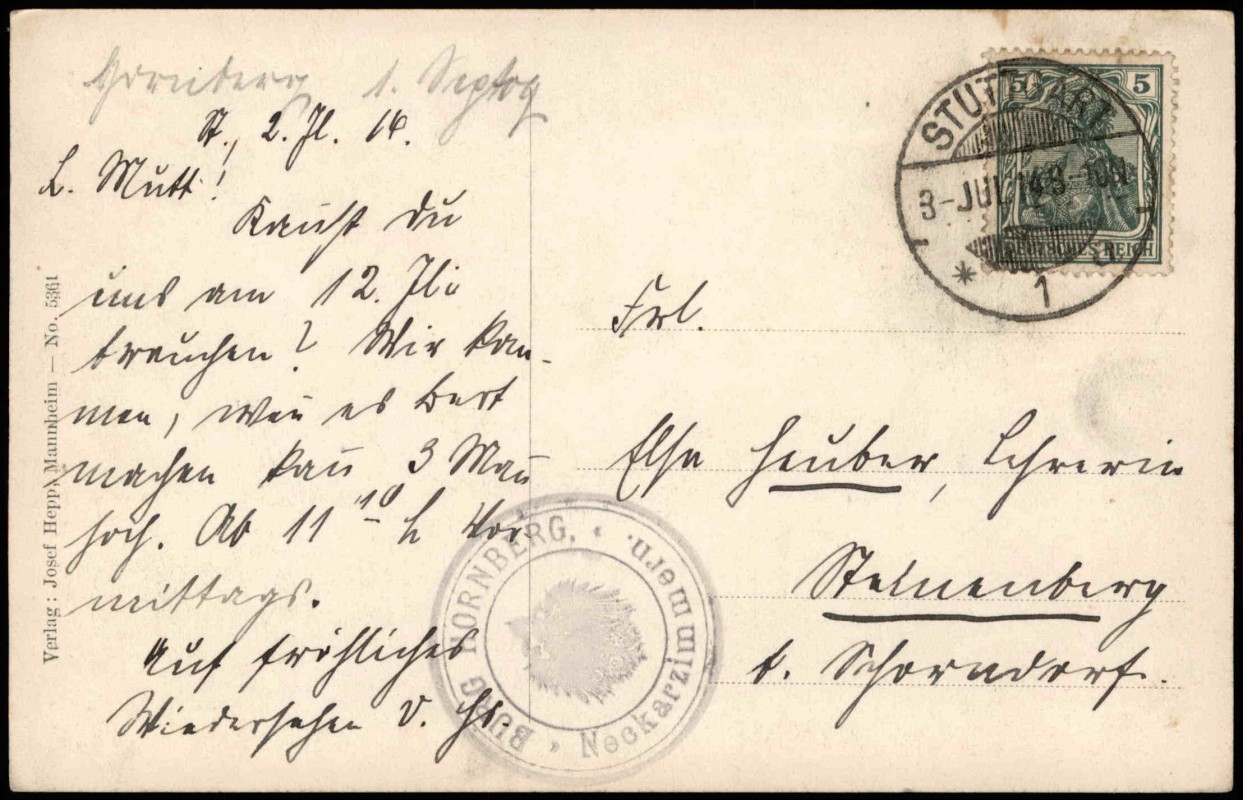 Hornberg 1.
St., 2. Jl. 14.
L. Mutt!
Kannst du
uns am 12. Jli
brauchen? Wir kom-
men, wenn es Bert
machen kann 3 Mann
hoch. Ab 11 10 h Vor-
mittags.
Auf fröhliches
Wiedersehen v. Hs.
Verlag: Josef Hepp, Mannheim — No. 5361
5 5
DEUTSCHES REICH
STUTTGART
3-JUL 14 8-
* 1
Frl.
Else Heuber, Lehrerin
Steinenberg
b. Schorndorf.
BURG HORNBERG. * Neckarzimmern. *